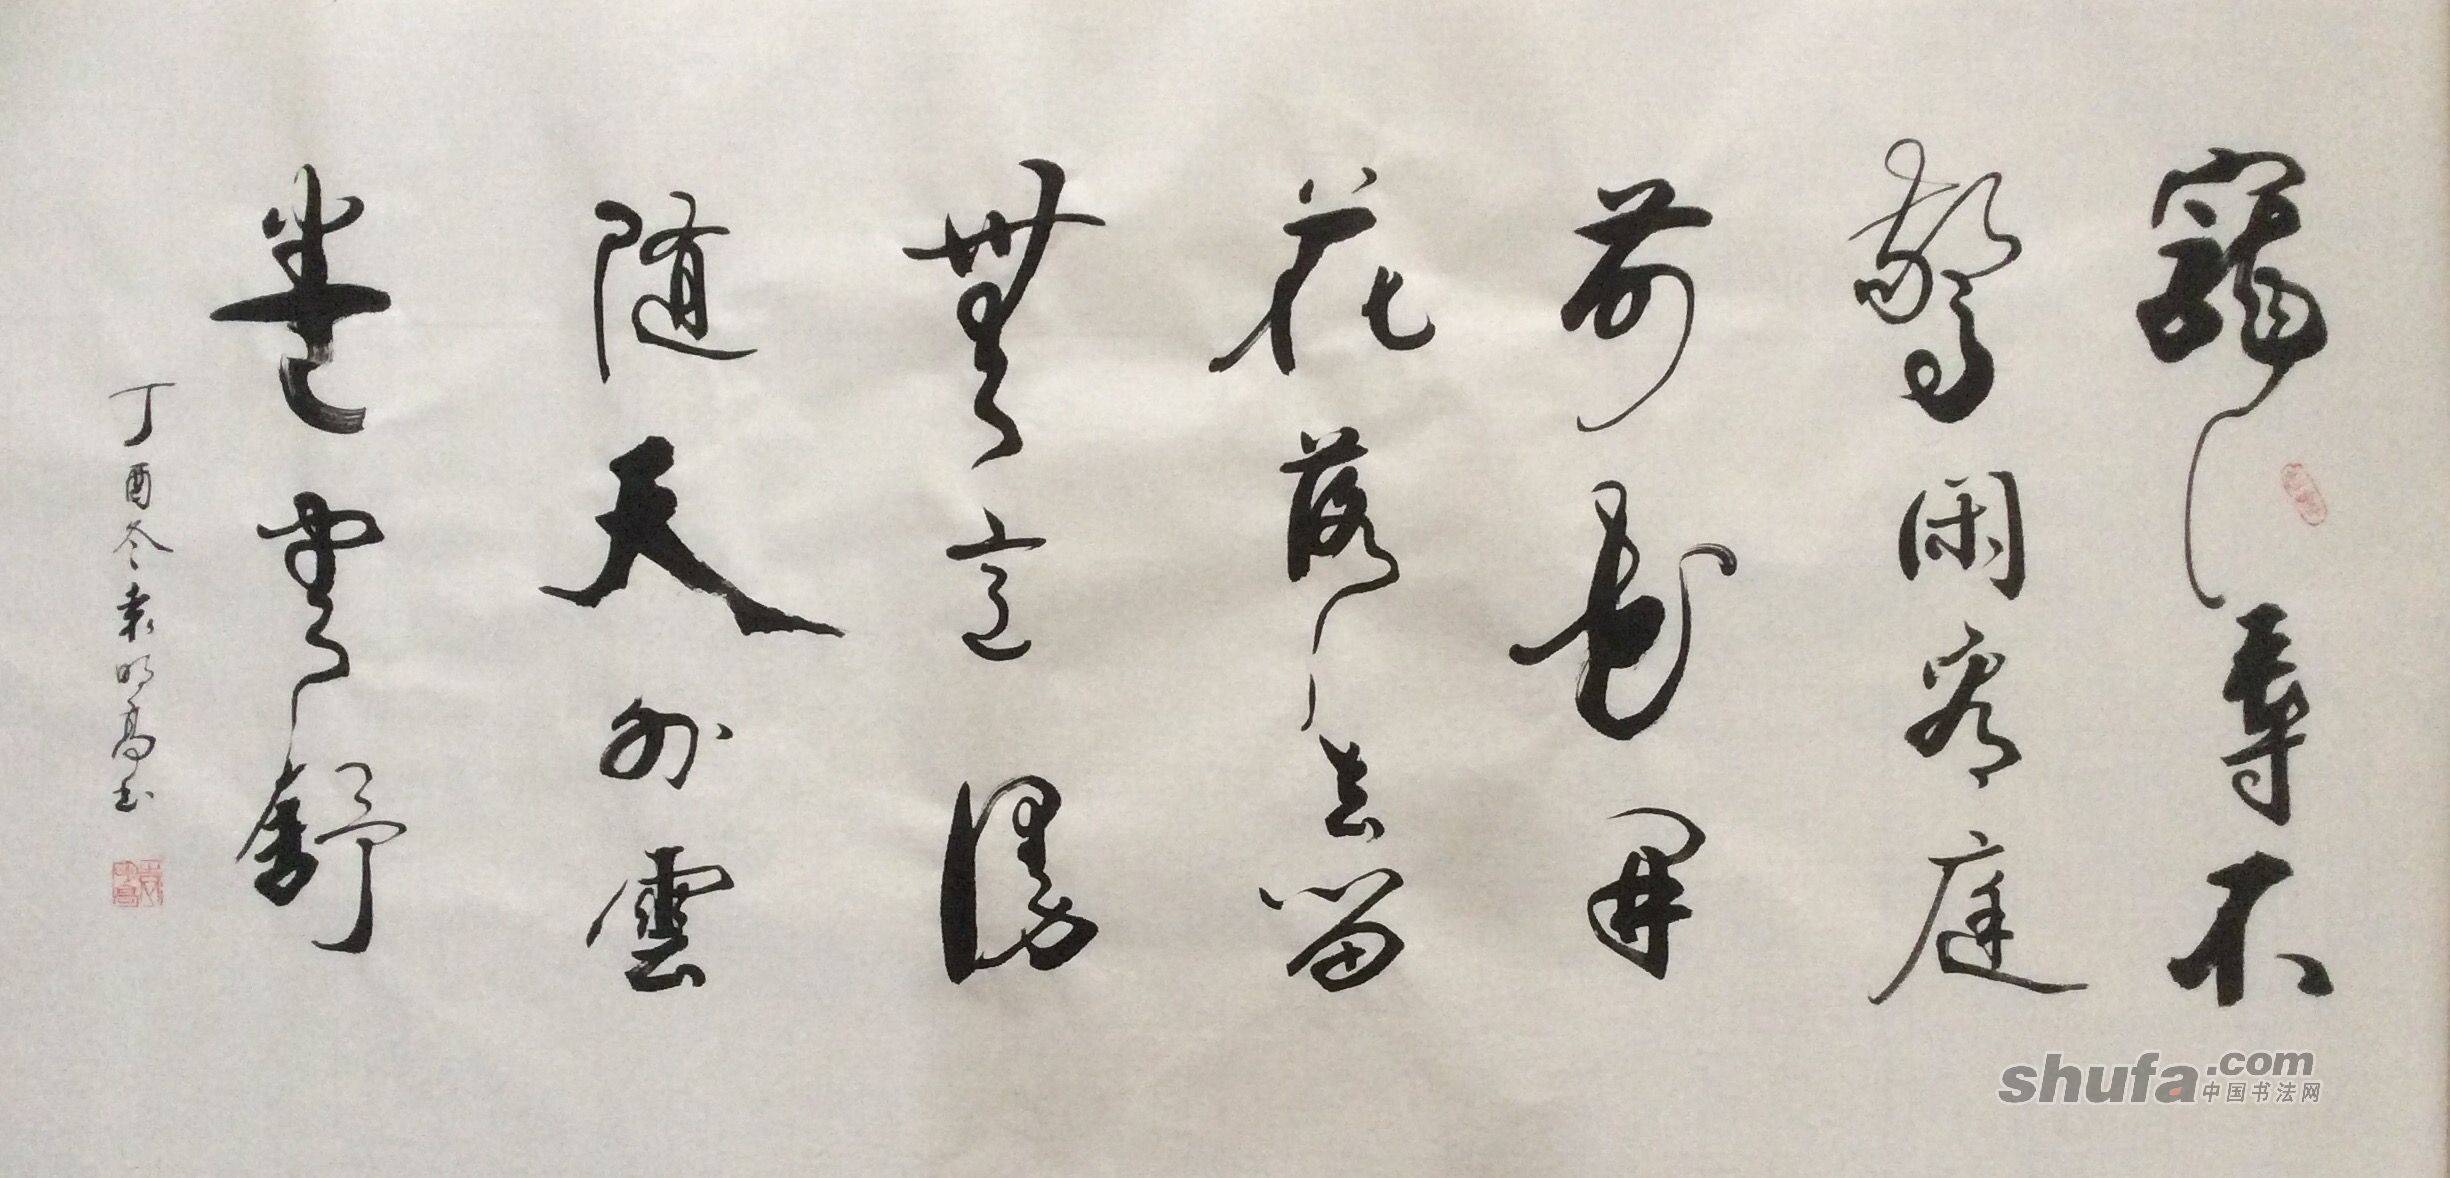 寵辱不
驚閑看庭
前花開
花落去留
無意漫
随天外雲
卷雲舒
丁酉冬袁明高书
袁明高
shufa.com
中国书法网